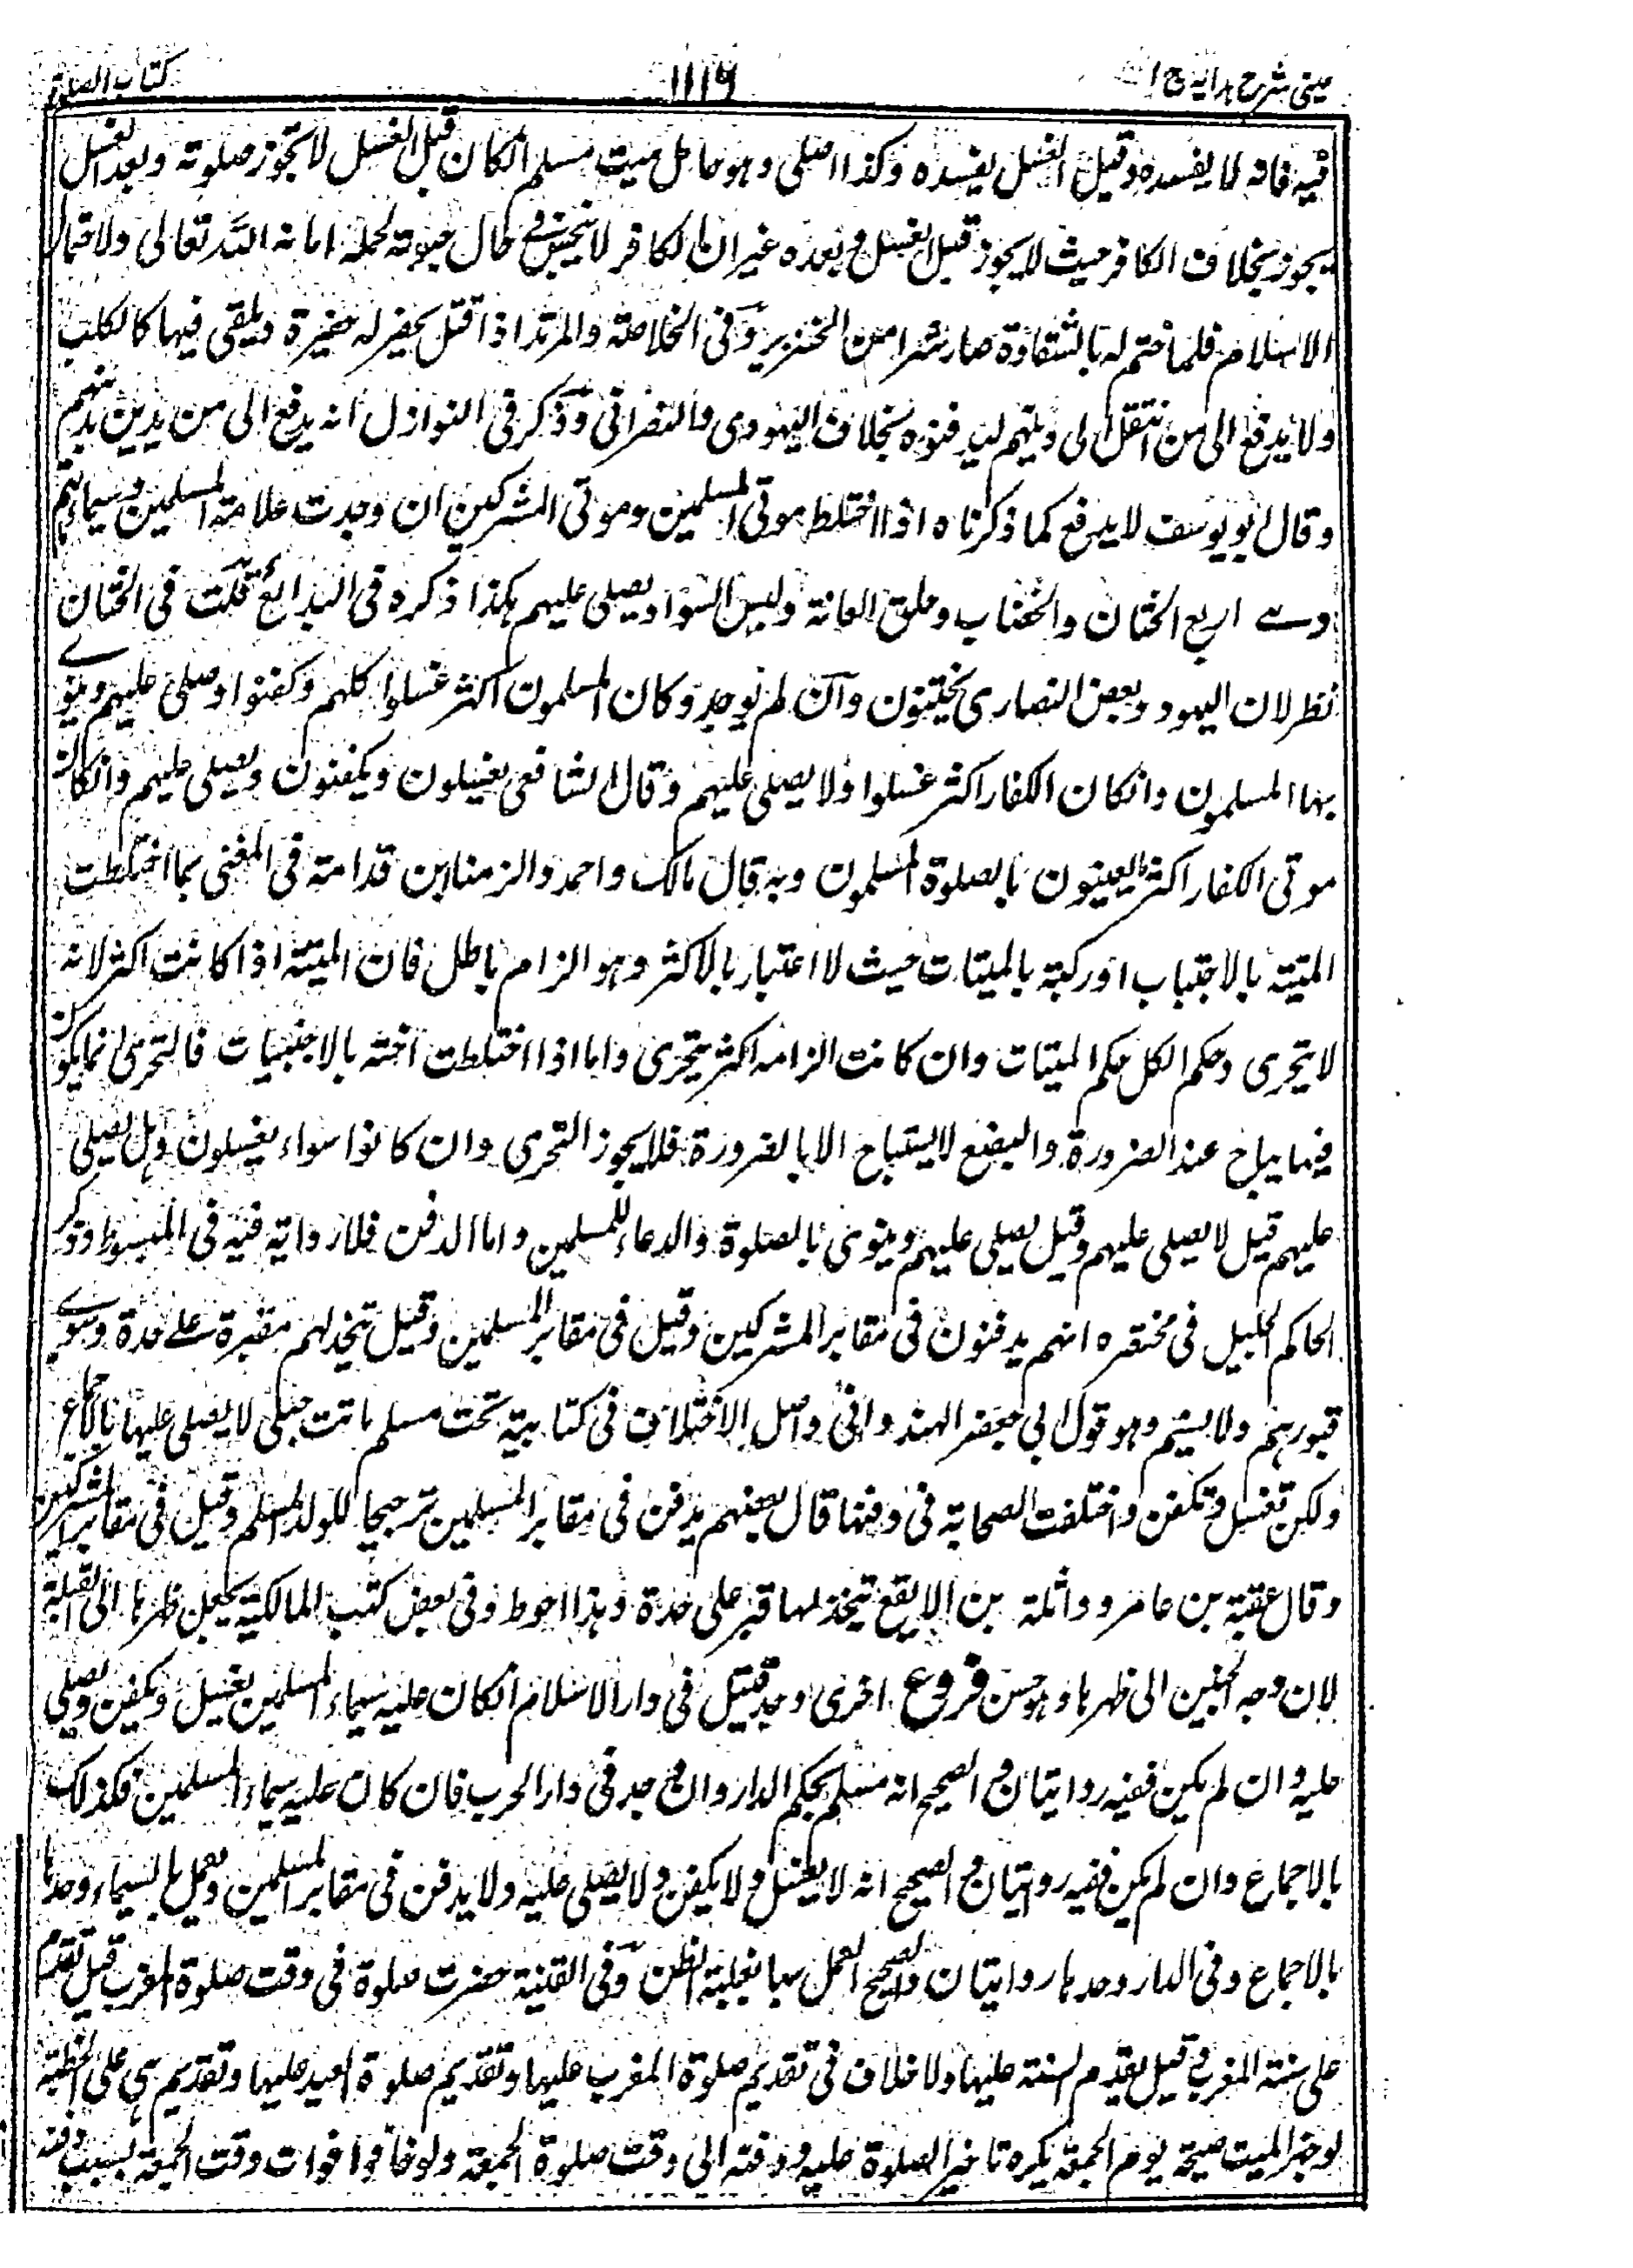 عینی شرح ہدایہ ج ۱
۱۱۱۶
کتاب الصلوة
فیہ فانه لا یفسده وقیل الغسل یفسده وکذا اصلی وہو حامل میت مسلم انکان قبل الغسل لا تجوز صلوته وبعد الغسل
یجوز بخلاف الکافر حیث لا یجوز قبل الغسل وبعده غیر ان الکافر لا ینجس فی حال حیوته لحمله امانة الله تعالی ولاحتمال
الاسلام فلما ختم له بالشقاوة صار شرا من الخنزیر وفی الخلاصة والمرتد اذا قتل یحفر له حفیرة ویلقی فیہا کالکلب
ولا یدفع الی من انتقل الی دینہم لیدفنوه بخلاف الیہودی والنصرانی وذکر فی النوازل انه یدفع الی من یدین بدینہم
وقال ابو یوسف لا یدفع کما ذکرناه اذا اختلط موتی المسلمین وموتی المشرکین ان وجدت علامة المسلمین وسیماہم
وہے اربع الختان والخضاب وحلق العانة ولبس السواد یصلی علیہم ہکذا ذکره فی البدائع قلت فی الختان
نظر لان الیہود وبعض النصاری یختتنون وان لم یوجد وکان المسلمون اکثر غسلوا کلہم وکفنوا وصلی علیہم وینوے
بہا المسلمون وانکان الکفار اکثر غسلوا ولا یصلی علیہم وقال الشافعی یغسلون ویکفنون ویصلی علیہم وانکان
موتی الکفار اکثر یعینون بالصلوة المسلمون وبه قال مالک واحمد والزمنا ابن قدامة فی المغنی بما اختلطت
المیتة بالاجنباب او رکیة بالمیتات حیث لا اعتبار بالاکثر وہو الزام باطل فان المیتة اذا کانت اکثر لانه
لا یتحری وحکم الکل حکم المیتات وان کانت الزامه اکثر یتحری واما اذا اختلطت اخته بالاجنبیات فالتحری انما یکون
فیما یباح عند الضرورة والبضع لا یستباح الا بالضرورة فلا یجوز التحری وان کانوا سواء یغسلون وہل یصلی
علیہم قیل لا یصلی علیہم وقیل یصلی علیہم وینوی بالصلوة والدعاء للمسلمین واما الدفن فلا روایة فیه فی المبسوط وذکر
الحاکم الجلیل فی مختصره انہم یدفنون فی مقابر المشرکین وقیل فی مقابر المسلمین وقیل تتخذ لہم مقبرة علے حدة وتسوے
قبورہم ولا یسنم وہو قول ابی جعفر الہندوانی واصل الاختلاف فی کتابیة تحت مسلم ماتت حبلی لا یصلی علیہا بالاجماع
ولکن تغسل وتکفن واختلفت الصحابة فی دفنہا قال بعضہم یدفن فی مقابر المسلمین ترجیحا للولد المسلم وقیل فی مقابر المشرکین
وقال عقبة بن عامر وواثلة بن الایقع یتخذ لہا قبر علی حدة وہذا احوط وفی بعض کتب المالکیة یجعل ظہرہا الی القبلة
لان وجه الجنین الی ظہرہا وہو حسن فروع اخری وجد قتیل فی دار الاسلام انکان علیه سیماء المسلمین یغسل ویکفن ویصلی
علیه وان لم یکن ففیه روایتان والصحیح انه مسلم بحکم الدار وان وجد فی دار الحرب فان کان علیه سیماء المسلمین فکذلک
بالاجماع وان لم یکن ففیه روایتان والصحیح انه لا یغسل ولا یکفن ولا یصلی علیه ولا یدفن فی مقابر المسلمین وعمل بالسیماء وحدہا
بالاجماع وفی الدار وحدہا روایتان والصحیح العمل بہا بغلبة الظن وفی القنیة حضرت صلوة فی وقت صلوة المغرب قیل تقدم
علی سنة المغرب وقیل یقدم السنة علیہا ولا خلاف فی تقدیم صلوة المغرب علیہا وتقدیم صلوة العید علیہا وتقدیم ہی علی الخطبة
لو جہز المیت صبیحة یوم الجمعة یکره تاخیر الصلوة علیه ودفنه الی وقت صلوة الجمعة ولو خافوا فوات وقت الجمعة بسبب دفنه